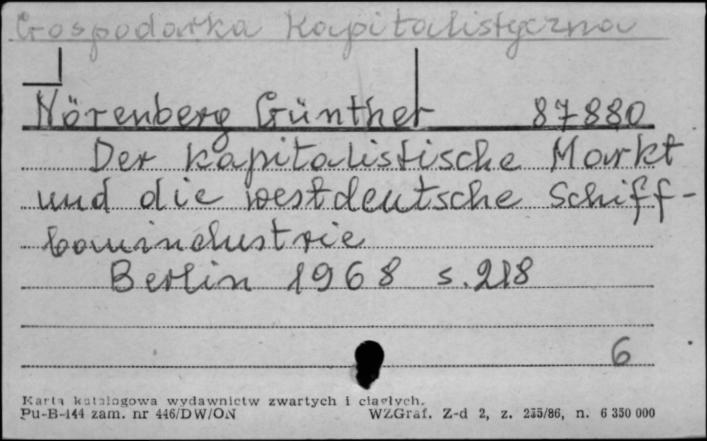 Gospodarka Kapitalistyczna
Nörenberg Günther 87880
Der kapitalistische Markt
und die westdeutsche Schiff-
bauindustrie
Berlin 1968 s. 218
6
Karta katalogowa wydawnictw zwartych i ciągłych.
Pu-B-144 zam. nr 446/DW/ON WZGraf. Z-d 2, z. 235/86, n. 6 350 000